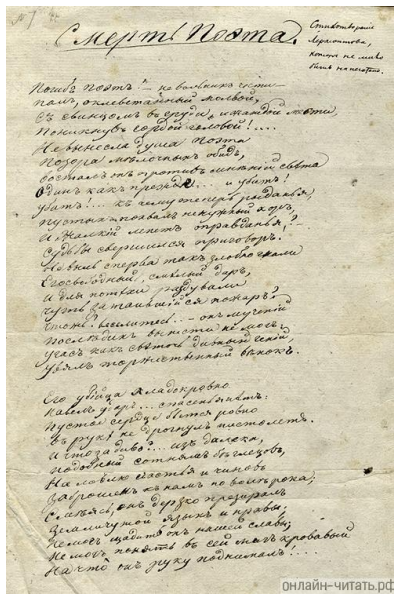 Смерть Поэта.
Стихотворение
Лермонтова,
которое не можетъ
быть напечатано.
Погибъ Поэтъ! — невольникъ чести —
палъ, оклеветанный молвой,
съ свинцомъ въ груди и жаждой мести,
Поникнувъ гордой головой!....
Не вынесла душа Поэта
Позора мѣлочныхъ обидъ,
возсталъ онъ противъ мнѣній свѣта
Одинъ какъ прежде.... и убитъ!
убитъ!... къ чему теперь рыданья,
пустыхъ похвалъ ненужный хоръ,
и жалкій лепетъ оправданья,
Судьбы свершился приговоръ!
Не вы-ль сперва такъ злобно гнали
Его свободный, смѣлый даръ,
и для потѣхи раздували
чуть затаившійся пожаръ?
Чтожъ? веселитесь... — онъ мученій
Послѣднихъ вынести не могъ,
угасъ какъ свѣточь дивный геній,
увялъ торжественный вѣнокъ.
Его убійца хладнокровно
навелъ ударъ... спасенья нѣтъ:
Пустое сердце бьется ровно
въ рукѣ не дрогнулъ пистолетъ.
И что за диво?... изъ далека,
подобный сотнямъ бѣглецовъ,
На ловлю счастья и чиновъ
Заброшенъ къ намъ по волѣ рока;
Смѣясь, онъ дерзко презиралъ
Земли чужой языкъ и нравы;
Не могъ щадить онъ нашей славы;
Не могъ понять въ сей мигъ кровавый
На что онъ руку поднималъ!...
онлайн-читать.рф